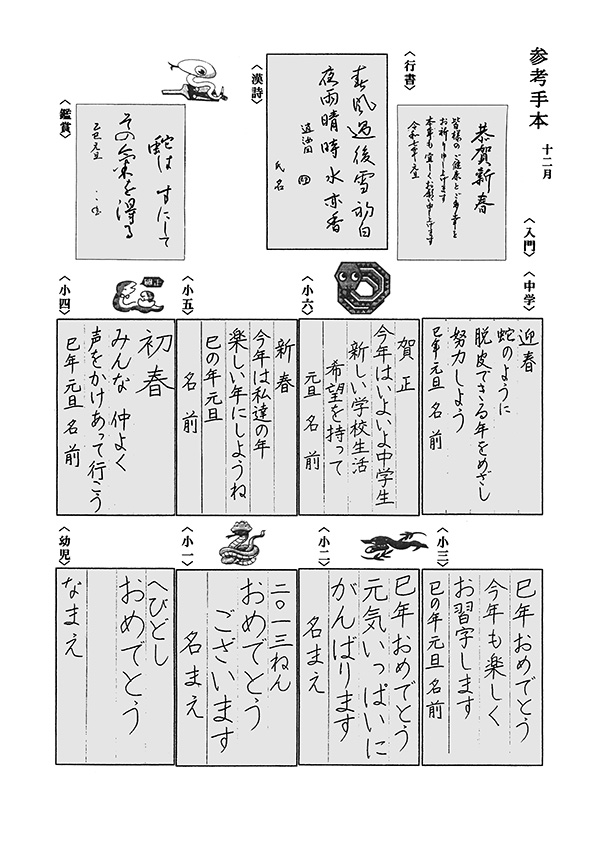 参考手本
十二月
〈行書〉
恭賀新春
皆様のご健康とご多幸を
お祈り申し上げます
本年も宜しくお願い申し上げます
令和七年元旦
〈漢詩〉
春風過後雪初白
夜雨晴時水亦香
氏名
〈鑑賞〉
蛇は すにして
その気を得る
乙巳元旦
〈入門〉
〈中学〉
迎春
蛇のように
脱皮できる年をめざし
努力しよう
巳年元旦 名前
〈小六〉
賀正
今年はいよいよ中学生
新しい学校生活
希望を持って
元旦 名前
〈小五〉
新春
今年は私達の年
楽しい年にしようね
巳の年元旦
名前
〈小四〉
賀正
初春
みんな仲よく
声をかけあって行こう
巳年元旦 名前
〈小三〉
巳年おめでとう
今年も楽しく
お習字します
巳の年元旦 名前
〈小二〉
巳年おめでとう
元気いっぱいに
がんばります
名まえ
〈小一〉
二〇一三ねん
おめでとう
ございます
名まえ
〈幼児〉
へびどし
おめでとう
なまえ